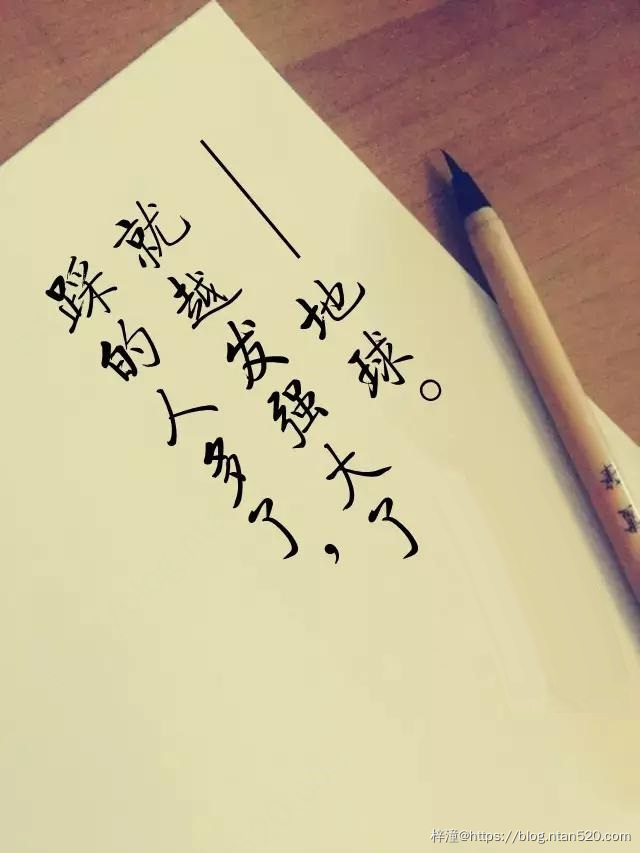 踩的人多了，
就越发强大了
——地球。
梓潼@https://blog.ntan520.com